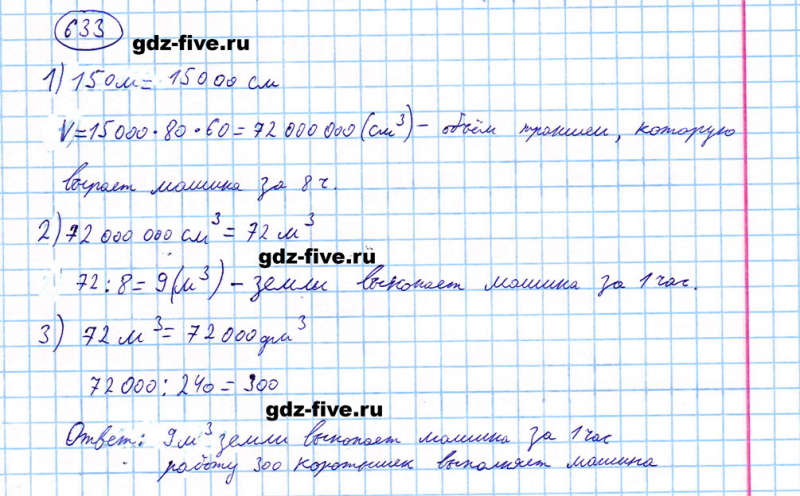 633
gdz-five.ru
1) 150м = 15000 см
V=15000·80·60=72 000 000 (см³) - объём траншеи, которую
выроет машина за 8 ч.
2) 72 000 000 см³ = 72 м³
gdz-five.ru
72:8=9(м³) - земли выкопает машина за 1 час.
3) 72 м³ = 72 000 дм³
72 000 : 240 = 300
gdz-five.ru
Ответ: 9м³ земли выкопает машина за 1 час
работу 300 коротышек выполняет машина